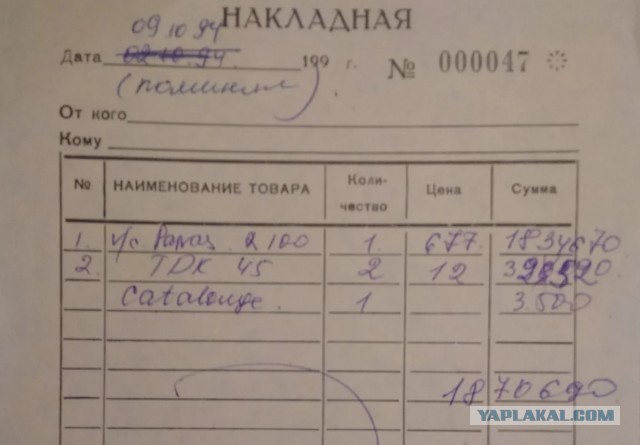 НАКЛАДНАЯ
09.10.94
Дата 02.10.94. 199 г. № 000047
От кого
Кому
№ НАИМЕНОВАНИЕ ТОВАРА Коли-чество Цена Сумма
1. Panas. 2100 1. 677. 1834670
2. TDK 45 2 12 32520.
Catalouge. 1 3.500
1870690
YAPLAKAL.COM